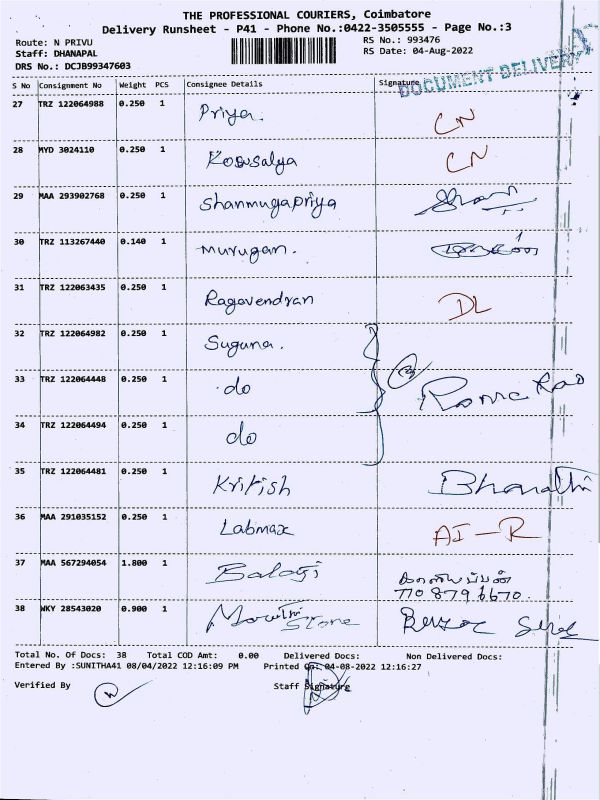 THE PROFESSIONAL COURIERS, Coimbatore
Delivery Runsheet - P41 - Phone No.:0422-3505555 - Page No.:3
Route: N PRIVU RS No.: 993476
Staff: DHANAPAL RS Date: 04-Aug-2022
DRS No.: DCJB99347603
DOCUMENT DELIVERY
S No Consignment No Weight PCS Consignee Details Signature
27 TRZ 122064988 0.250 1 Priya. CN
28 MYD 3024110 0.250 1 Kowsalya CN
29 MAA 293902768 0.250 1 Shanmugapriya
30 TRZ 113267440 0.140 1 Murugan.
31 TRZ 122063435 0.250 1 Ragavendran DL
32 TRZ 122064982 0.250 1 Suguna.
33 TRZ 122064448 0.250 1 do 3 Rama Rao
34 TRZ 122064494 0.250 1 do
35 TRZ 122064481 0.250 1 Kritish Bharathi
36 MAA 291035152 0.250 1 Labmax AI-R
37 MAA 567294054 1.800 1 Balaji
38 WKY 28543020 0.900 1 Stone
Total No. Of Docs: 38 Total COD Amt: 0.00 Delivered Docs: Non Delivered Docs:
Entered By :SUNITHA41 08/04/2022 12:16:09 PM Printed On: 04-08-2022 12:16:27
Verified By Staff Signature